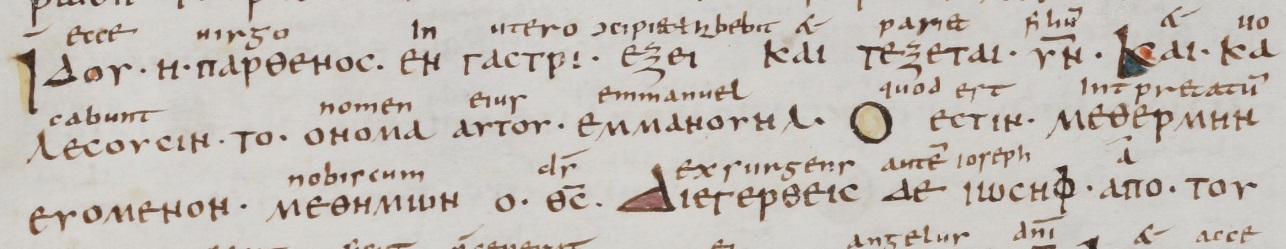 ecce uirgo in utero ɔcipiet & habebit & pariet filiū & uo
ΙΔΟΥ · Η · ΠΑΡΘΕΝΟΣ · ΕΝ ΓΑΣΤΡΙ · ΕΞΕΙ ΚΑΙ ΤΕΞΕΤΑΙ · ΥΝ · ΚΑΙ · ΚΑ
cabunt nomen eius emmanuel quod est
ΛΕCΟΥCΙΝ · ΤΟ · ΟΝΟΜΑ ΑΥΤΟΥ · ΕΜΜΑΝΟΥΗΛ · Ο ΕCΤΙΝ · ΜΕΘΕΡΜΗΝ
nobiscum d̄s exsurgens autē ioseph ā
ΕΥΟΜΕΝΟΝ · ΜΕΘΗΜΙΩΝ Ο · Θ̅C̅ · ΔΙΕΓΕΡΘΕΙC ΔΕ ΙΙΩCΗΦ · ΑΠΟ · ΤΟΥ
angelus dn̄i & acce